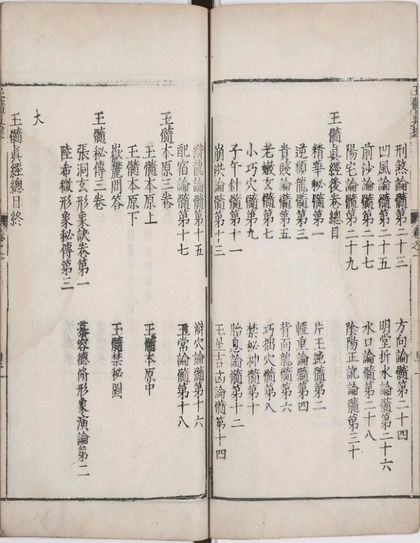 刑煞論髓第二十三　方向論髓第二十四
凹風論髓第二十五　明堂折水論髓第二十六
前沙論髓第二十七　水口論髓第二十八
陽宅論髓第二十九　陰陽正訛論髓第三十
玉髓眞經後卷總目
精華秘髓第一　片玉純髓第二
逆順龍髓第三　輕重論髓第四
貴賤論髓第五　背面龍髓第六
老嫩玄髓第七　巧拙穴髓第八
小巧穴髓第九　禁秘神髓第十
子午針髓第十一　胎息論髓第十二
崩洪論髓第十三　玉星吉凶論髓第十四
辯龍論髓第十五　辯穴論髓第十六
配宿論髓第十七　玉常論髓第十八
玉髓本原三卷
玉髓本原上　玉髓本原中
玉髓本原下
嶽麓問答　玉髓禁秘圖
玉髓秘傳三卷
張洞玄形象訣卷第一
蔡德脩形象演論第二
陸希獄形象秘傳第三
大
玉髓眞經總目終